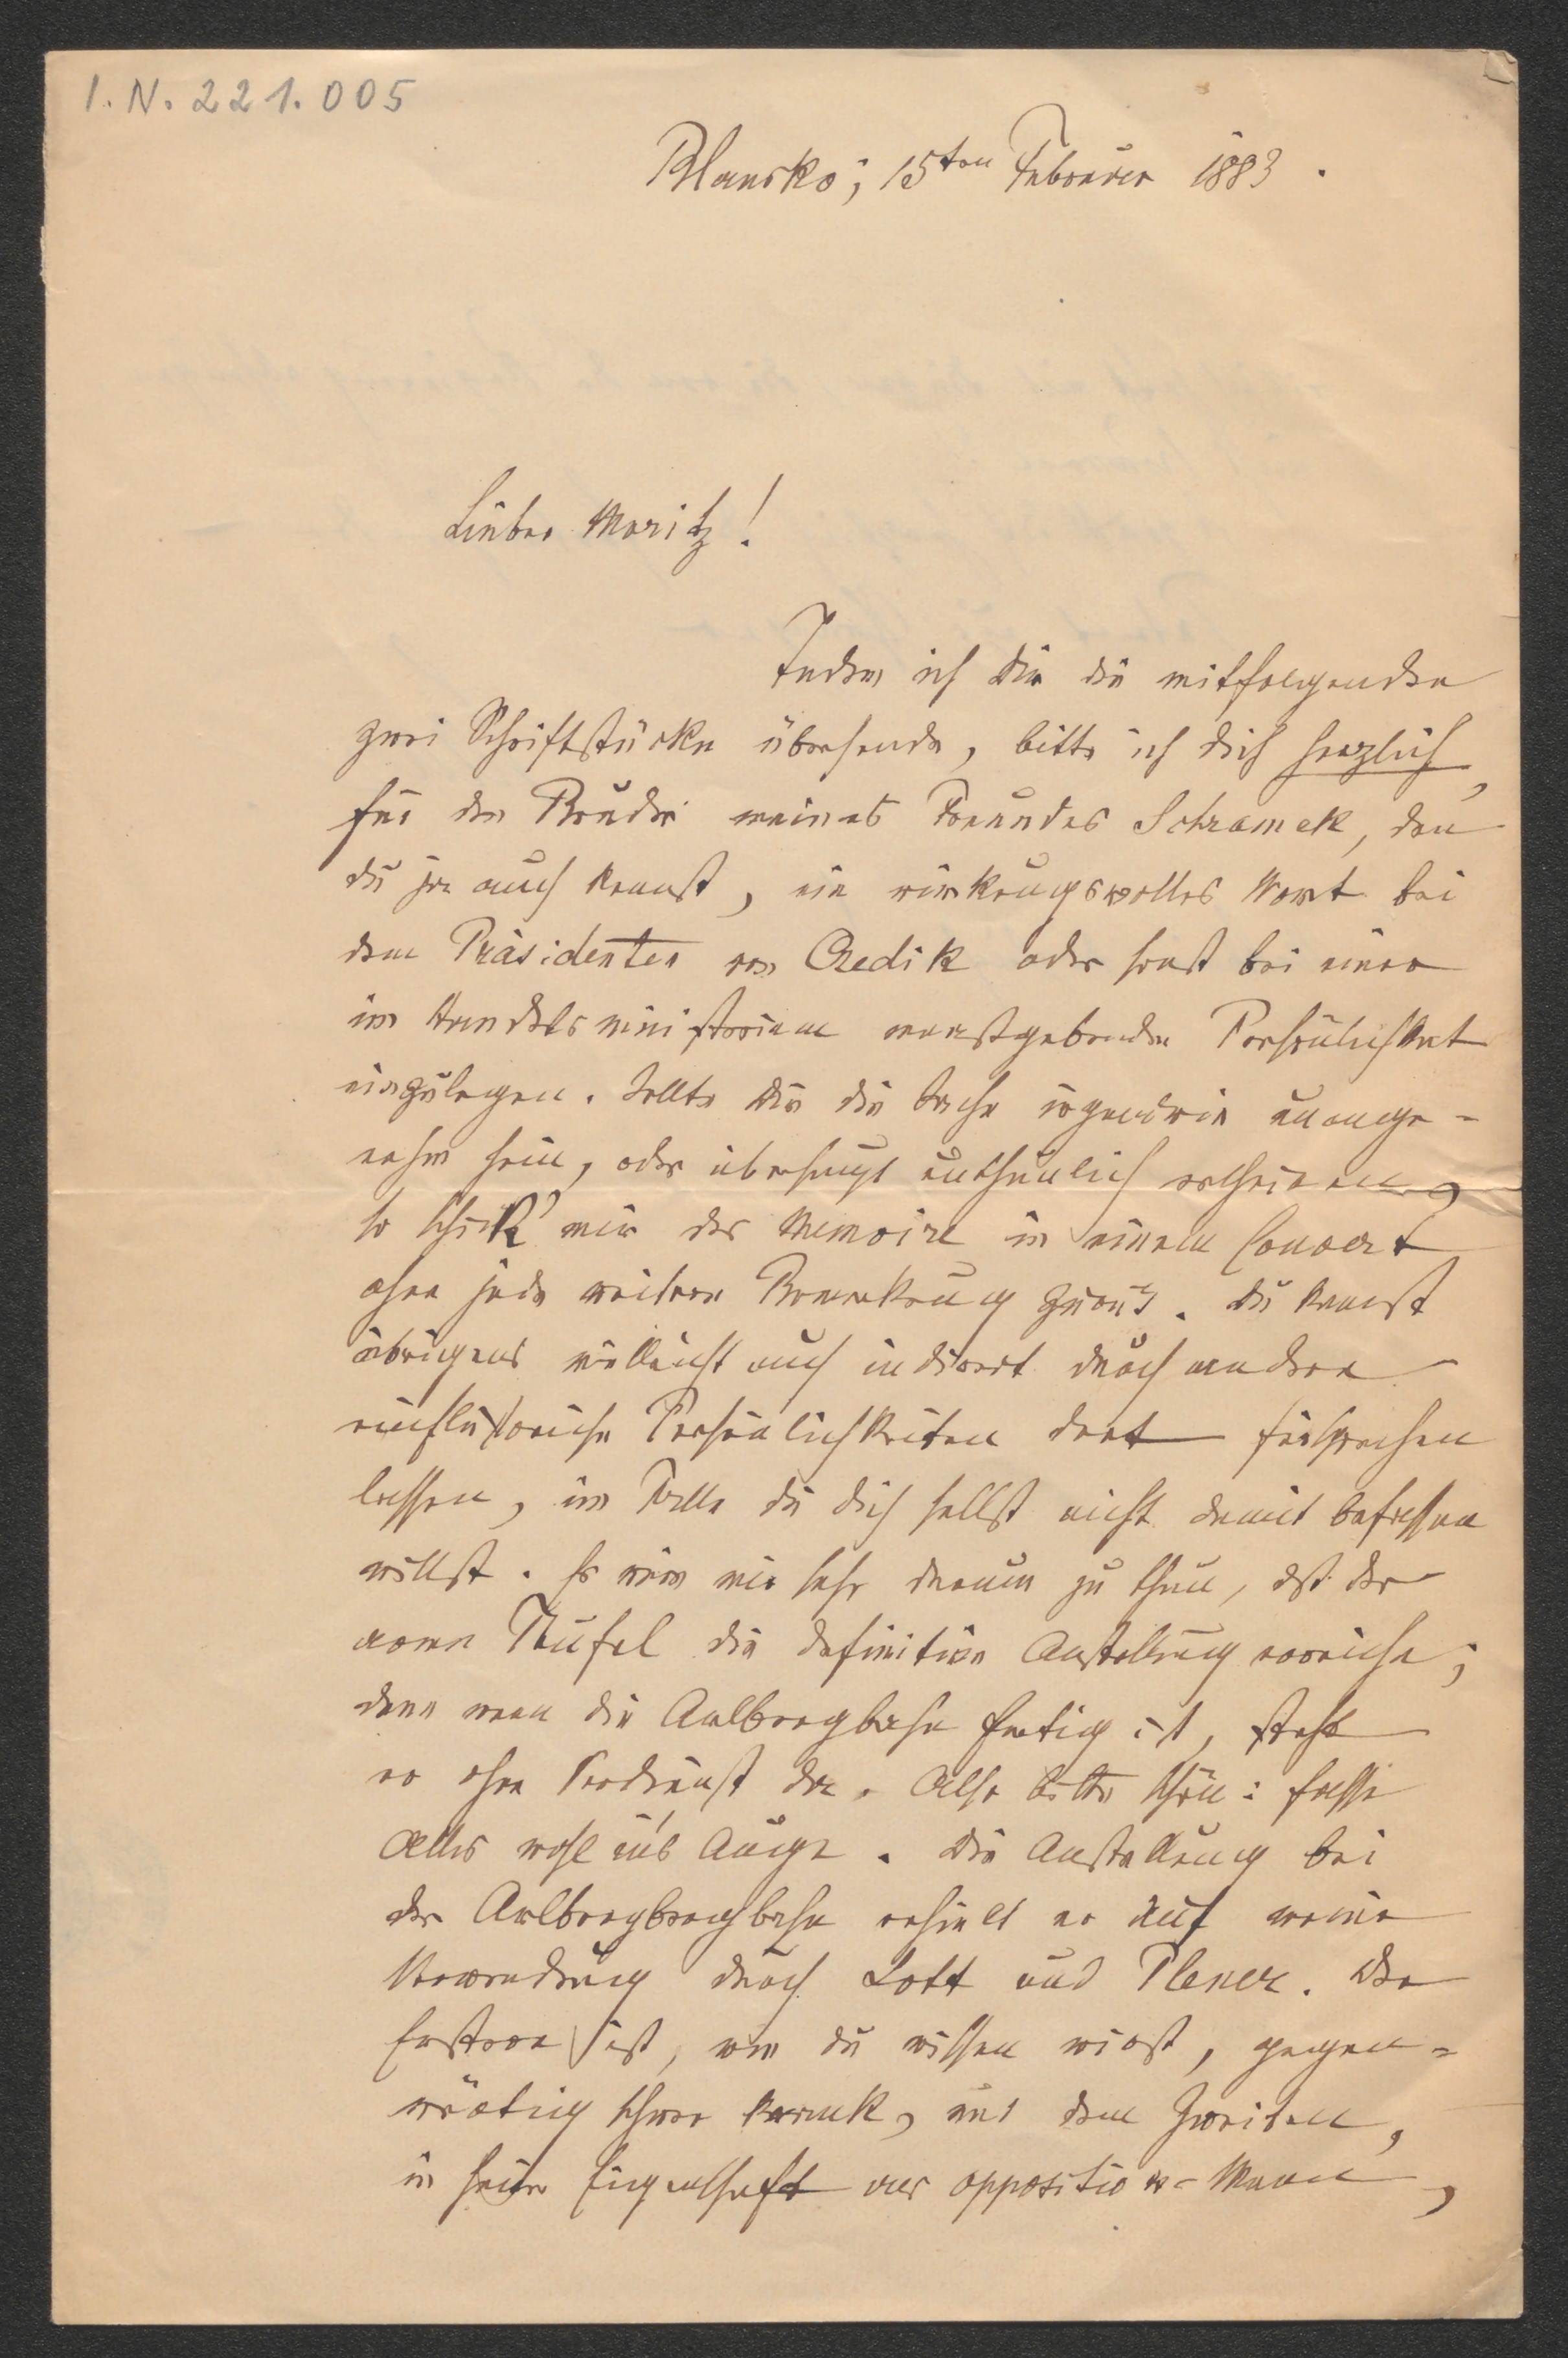 I. N. 221.005
Blansko, 15ten Februar 1883.
Lieber Moritz!
Indem ich Dir die mitfolgenden
zwei Schriftstücke übersende, bitte ich Dich herzlich,
für den Bruder meines Freundes Schramek, den
Du ja auch kennst, ein wirkungsvolles Wort bei
dem Präsidenten von Czedik oder sonst bei einer
im Handelsministerium massgebenden Persönlichkeit
einzulegen. Sollte Dir die Sache irgendwie unange-
nehm sein, oder überhaupt unthunlich erscheinen,
so schick' mir das Memoire in einem Couvert
ohne jede weitere Bemerkung zurück. Du kannst
übrigens vielleicht auch indirect durch andere
einflußreiche Persönlichkeiten dort fürsprechen
lassen, im Falle Du Dich selbst nicht damit befassen
willst. Es wäre mir sehr darum zu thun, dß der
arme Teufel die definitive Anstellung erreiche;
denn wenn die Arlbergbahn fertig ist, steht
er ohne Verdienst da. Also bitte schön: fasse
Alles wohl in's Auge. Die Anstellung bei
der Arlbergbergbahn erhielt er auf meine
Verwendung durch Lott und Plener. Der
Erstere ist, wie Du wissen wirst, gegen-
wärtig schwer krank, und dem Zweiten,
in seiner Eigenschaft als Oppositions-Mann,